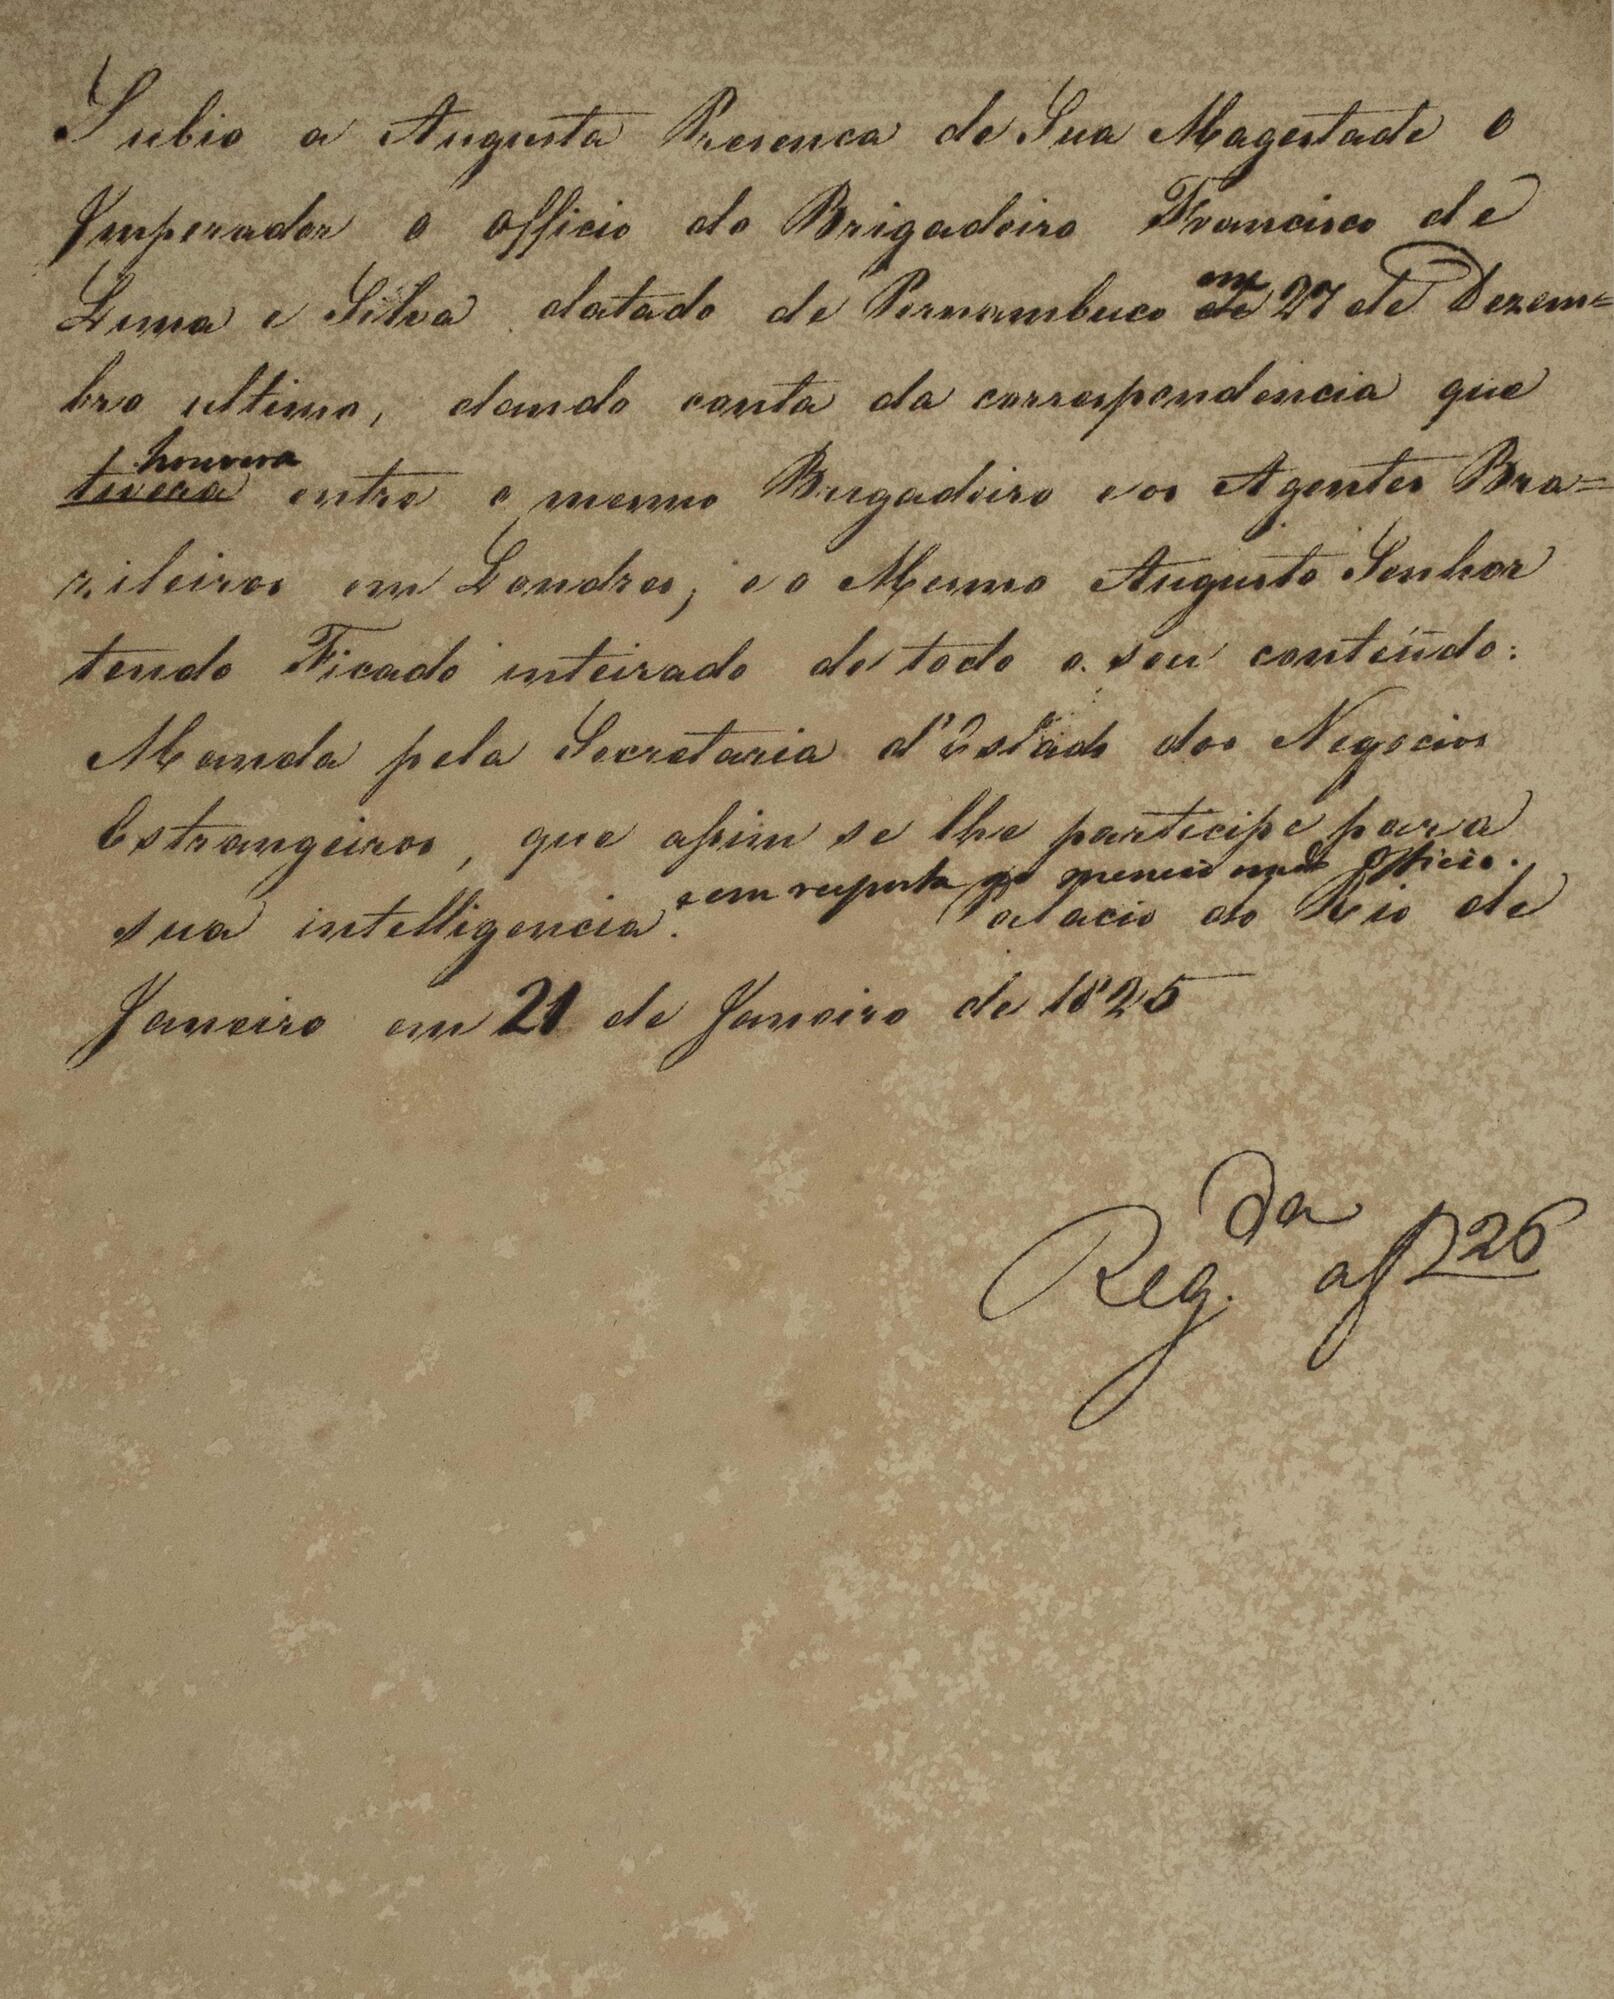 Subio a Augusta Presenca de Sua Magestade o
Imperador o officio do Brigadeiro Francisco de
Lima e Silva datado de Pernambuco de em 27 de Dezem=
bro ultimo, dando conta da correspondencia que
tivera houvera entre o mesmo Brigadeiro e os Agentes Bra=
zileiros em Londres; e o Mesmo Augusto Senhor
tendo Ficado inteirado de todo o seu conteúdo:
Manda pela Secretaria d'Estado dos Negocios
Estrangeiros, que assim se lhe participe para
e em resposta ao mencionado Officio.
sua intelligencia. Palacio do Rio de
Janeiro em 21 de Janeiro de 1825
Reg.da af 226